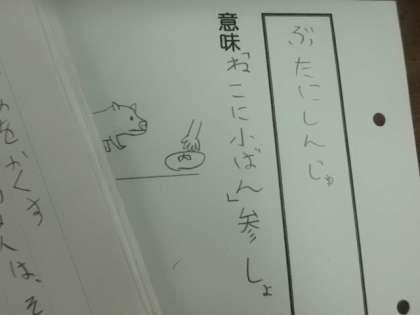 ぶたにしんじゅ
意味「ねこに小ばん」参しょ
をかくす
は、そ